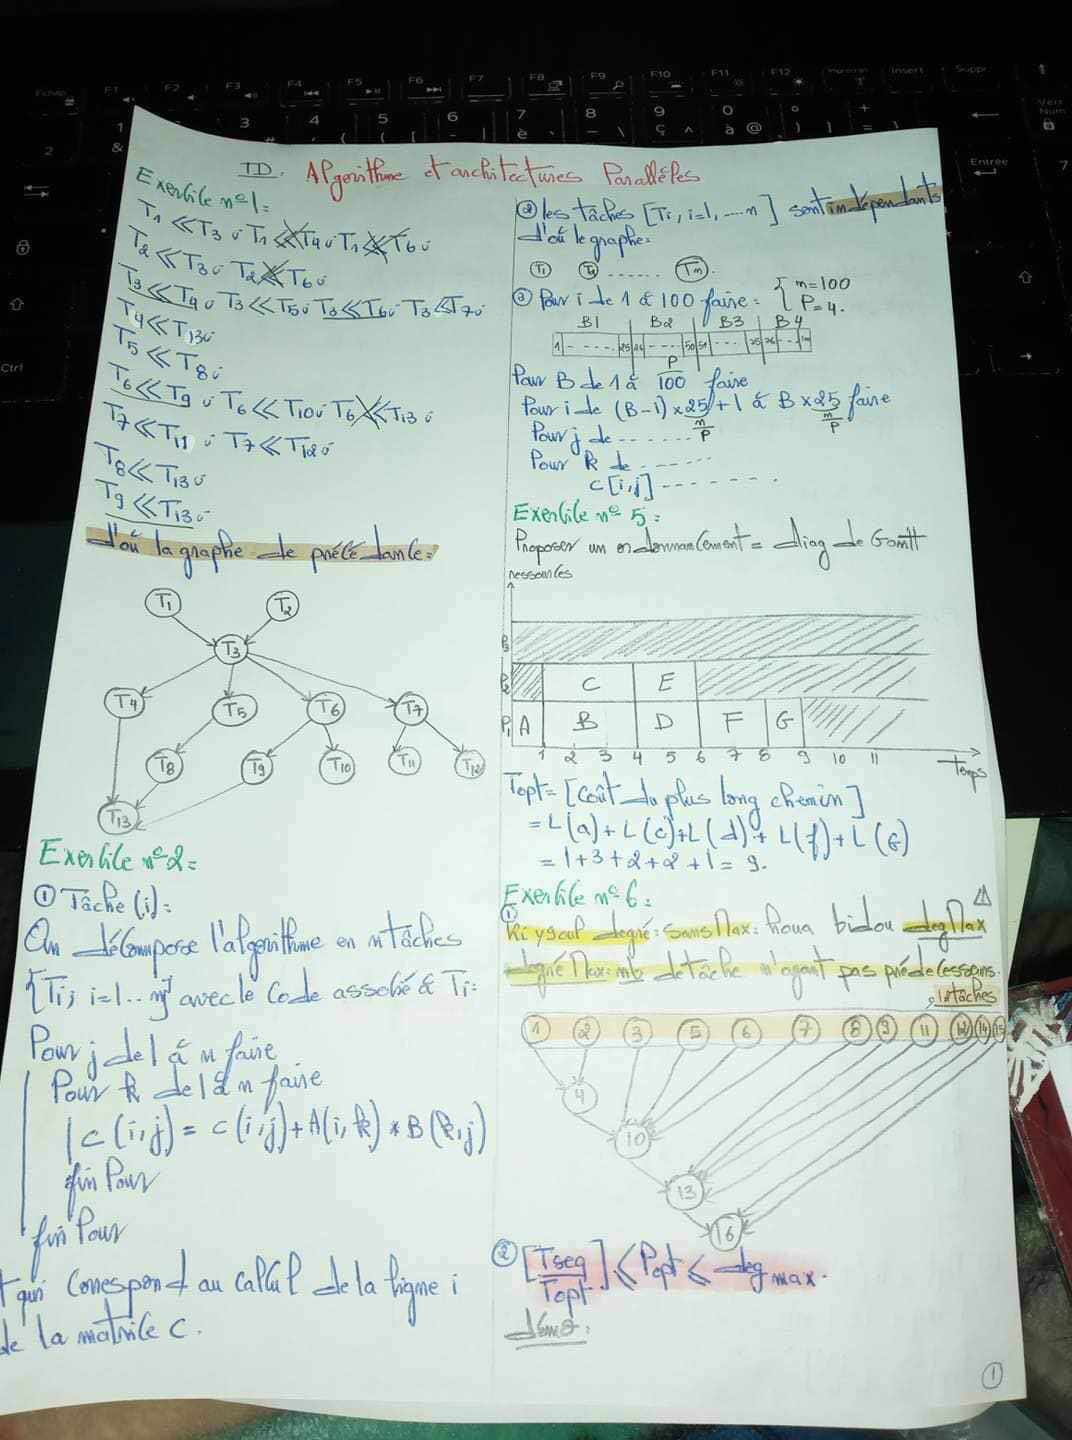 TD. Algorithme et architectures Parallèles
Exercice n°1:
T1 ≪ T3 ; T1 ≪ T4 ; T1 ≪ T6 ;
T2 ≪ T3 ; T2 ≪ T6 ;
T3 ≪ T4 ; T3 ≪ T5 ; T3 ≪ T6 ; T3 ≪ T7 ;
T4 ≪ T13 ;
T5 ≪ T8 ;
T6 ≪ T9 ; T6 ≪ T10 ; T6 ≪ T13 ;
T7 ≪ T11 ; T7 ≪ T12 ;
T8 ≪ T13 ;
T9 ≪ T13 ;
d'où la graphe de précédance:
T1 T2
T3
T4 T5 T6 T7
T8 T9 T10 T11 T12
T13
Exercice n°2:
① Tâche (i):
On décompose l'algorithme en n tâches
{Ti, i=1..n} avec le code associé à Ti:
Pour j de 1 à n faire
Pour k de 1 à n faire
C(i,j) = C(i,j) + A(i,k) * B(k,j)
fin Pour
fin Pour
qui correspond au calcul de la ligne i
de la matrice C.
② les tâches [Ti, i=1, ... n] sont indépendants
d'où le graphe:
T1 ...... Tn.
③ Pour i de 1 à 100 faire: { n=100
P=4.
B1 B2 B3 B4
1 ...... 25 26 ..... 50 51 ...
Pour B de 1 à 100 faire
P
Pour i de (B-1) x 25 + 1 à B x 25 faire
n/P n/P
Pour j de ......
Pour k de ......
C[i,j] ......
Exercice n° 5:
Proposer un ordonnancement = diag de Gantt
ressources
P3
P2 C E
P1 A B D F G
1 2 3 4 5 6 7 8 9 10 11
Temps
Topt = [coût du plus long chemin]
= L(a) + L(c) + L(d) + L(f) + L(G)
= 1 + 3 + 2 + 2 + 1 = 9.
Exercice n° 6:
① Ki ygoul degré: sans Max: houa bidou deg Max
degré Max: nb de tâche n'ayant pas prédecesseurs.
tâches
1 2 3 5 6 7 8 9 11 12 14 15
4
10
13
16
② [Tseq/Topt] ≤ Popt ≤ deg max.
démo:
1